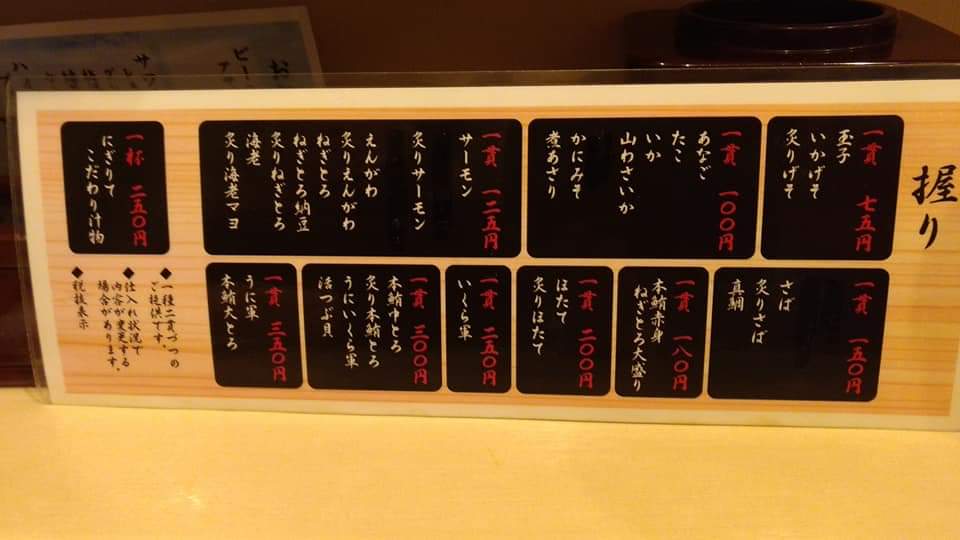 握り
一貫 七五円
玉子
いかげそ
炙りげそ
一貫 一〇〇円
あなご
たこ
いか
山わさいか
かにみそ
煮あさり
一貫 一二五円
サーモン
炙りサーモン
えんがわ
炙りえんがわ
ねぎとろ
ねぎとろ納豆
炙りねぎとろ
海老
炙り海老マヨ
一貫 一五〇円
さば
炙りさば
真鯛
一貫 一八〇円
本鮪赤身
ねぎとろ大盛り
一貫 二〇〇円
ほたて
炙りほたて
一貫 二五〇円
いくら軍
一貫 三〇〇円
本鮪中とろ
炙り本鮪とろ
うにいくら軍
活つぶ貝
一貫 三五〇円
うに軍
本鮪大とろ
一杯 二五〇円
にぎりて
こだわり汁物
◆一種二貫づつの
ご提供です。
◆仕入れ状況で
内容が変更する
場合があります。
◆税抜表示